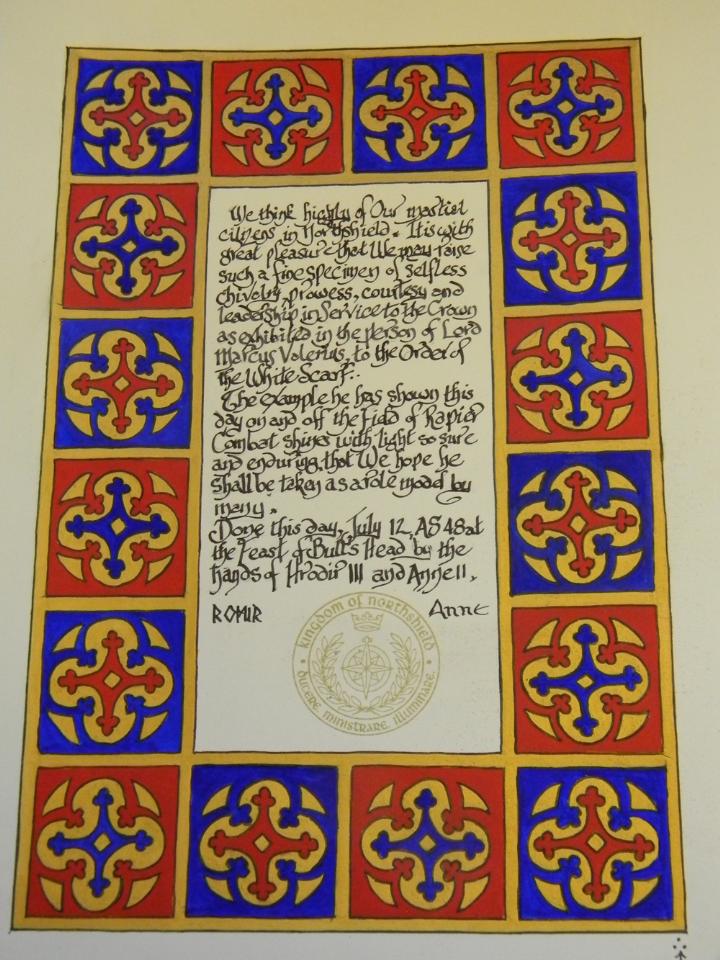 We think highly of Our martial
citizens in Northshield. It is with
great pleasure that We may raise
such a fine specimen of selfless
chivalry, prowess, courtesy and
leadership in Service to the Crown
as exhibited in the person of Lord
Marcus Valerius, to the Order of
the White Scarf.
The example he has shown this
day on and off the Field of Rapier
Combat shines with light so sure
and enduring, that We hope he
shall be taken as a role model by
many.
Done this day, July 12, AS 48 at
the Feast of Bull's Head by the
hands of Hrodir III and Anne II.
Anne
kingdom of northshield
ducere, ministrare, illuminare